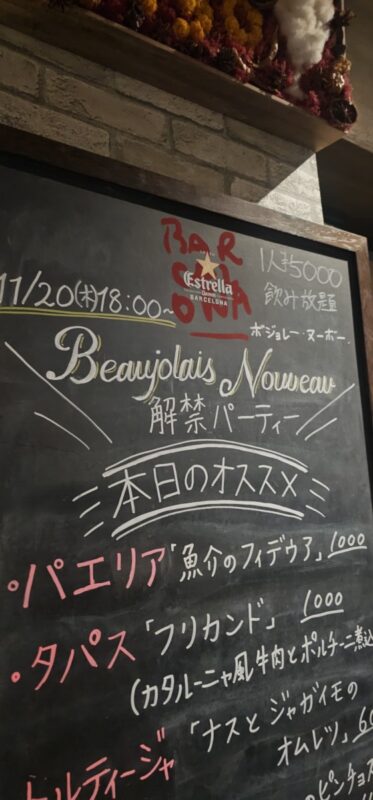 BAR
CEL
ONA
Estrella
Damm
BARCELONA
1人¥5000
飲み放題
11/20(木)18:00~
ボジョレー・ヌーボー
Beaujolais Nouveau
解禁パーティー
本日のオススメ
・パエリア「魚介のフィデウア」1000
・タパス「フリカンド」1000
(カタルーニャ風牛肉とポルチーニ煮込
トルティージャ「ナスとジャガイモの
オムレツ」
のピンチョス